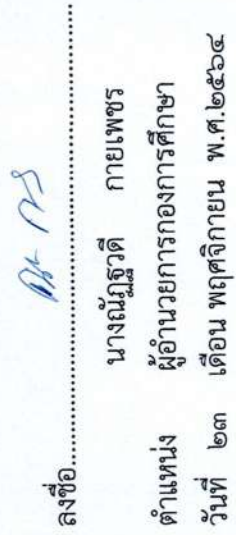 ลงชื่อ........................................................
นางณัฏฐวดี กายเพชร
ตำแหน่ง ผู้อำนวยการกองการศึกษา
วันที่ ๒๓ เดือน พฤศจิกายน พ.ศ.๒๕๖๔